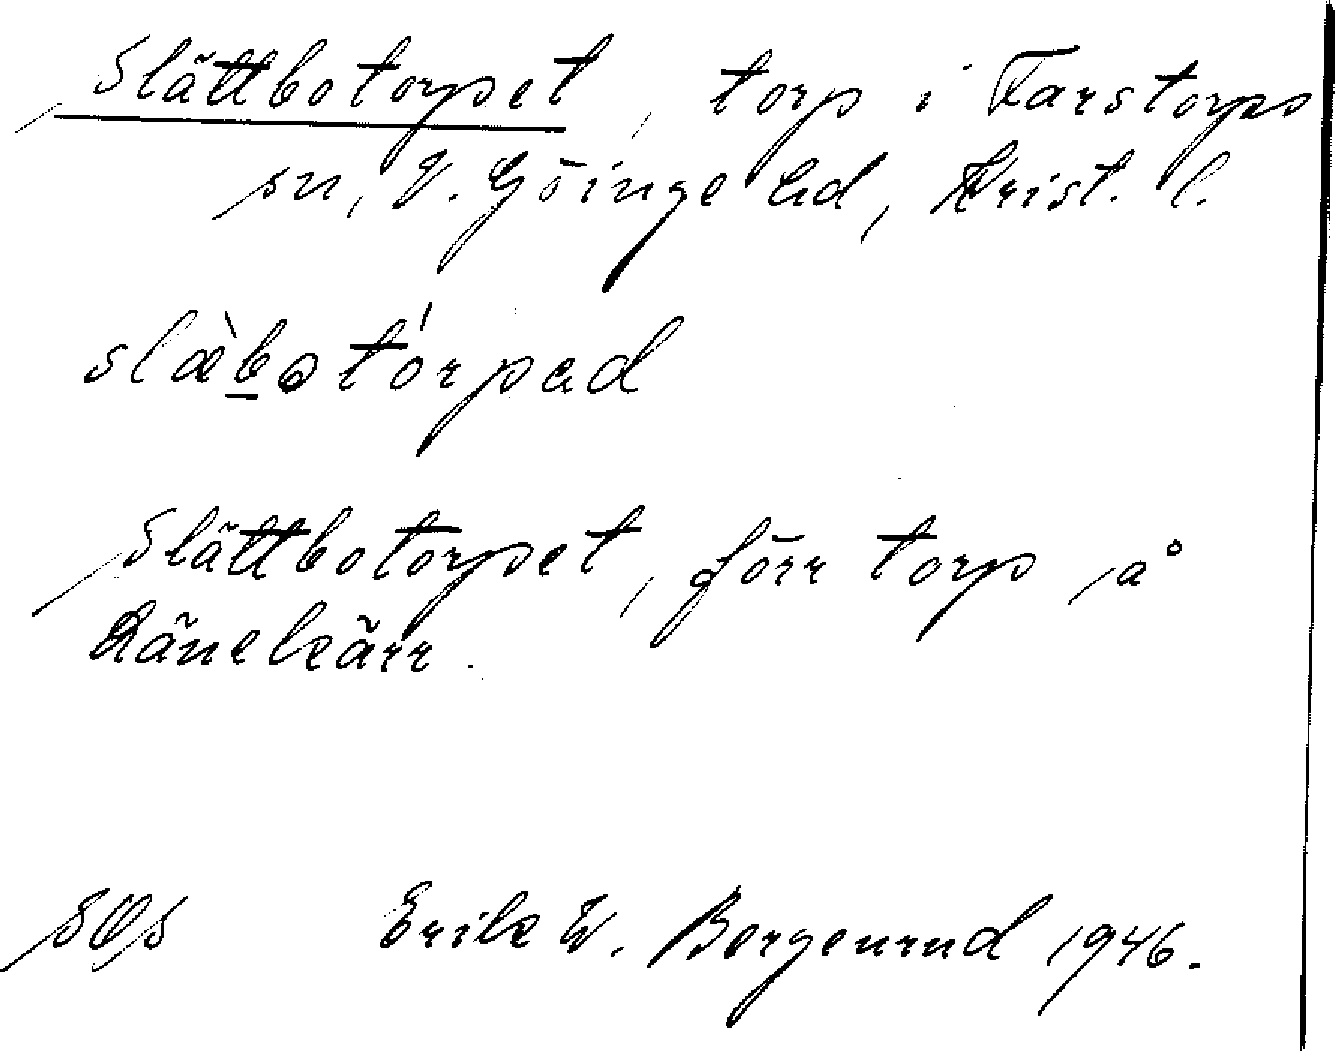 Slättbotorpet, torp i Farstorps
sn, V. Göinge hd, Krist. l.
slæ̀botórpad
Slättbotorpet, förr torp på
Ränekärr.
SOS Erik W. Bergenrud 1946.